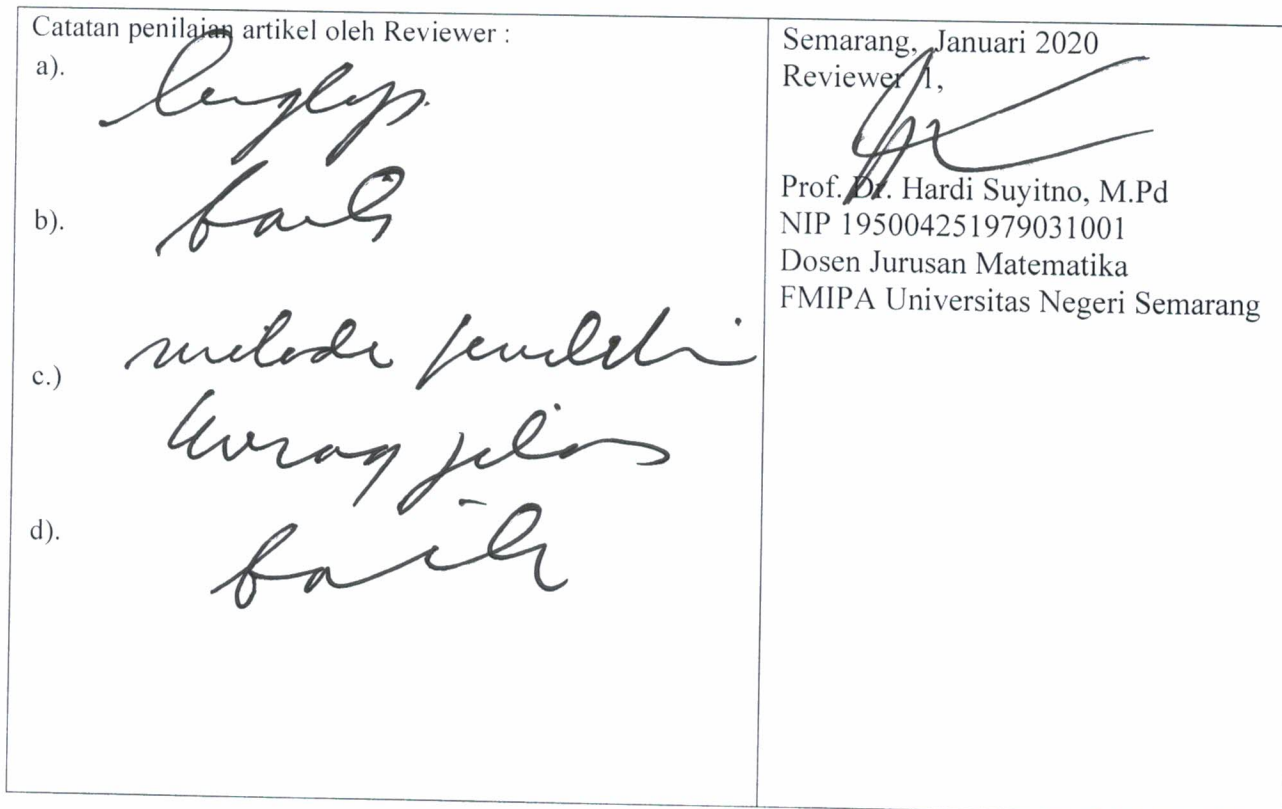 Catatan penilaian artikel oleh Reviewer :
a). lengkap
b). baik
c.) metode peneliti
kurang jelas
d). baik
Semarang, Januari 2020
Reviewer 1,
Prof. Dr. Hardi Suyitno, M.Pd
NIP 195004251979031001
Dosen Jurusan Matematika
FMIPA Universitas Negeri Semarang